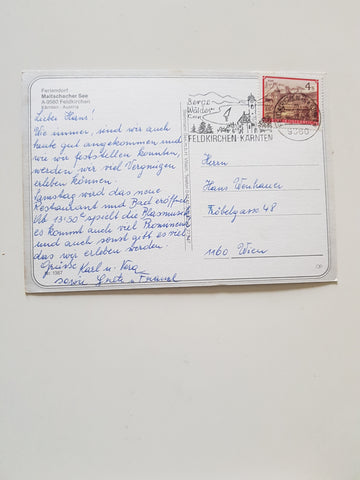 Feriendorf
Maltschacher See
A-9560 Feldkirchen
Kärnten - Austria
Lieber Hansi!
Wie immer, sind wir auch
heute gut angekommen und
wie wir feststellen konnten,
werden wir viel Vergnügen
erleben können.
Samstag wird das neue
Restaurant und Bad eröffnet.
Ab 13:30 spielt die Blasmusik,
es kommt auch viel Prominenz
und auch sonst gibt es viel
das wir erleben werden.
Grüsse Karl u. Vera
sowie Gretl u.
Berge
Wälder
FELDKIRCHEN KÄRNTEN
9560
4
Herrn
Hans
Fröbelgasse 48
1160 Wien